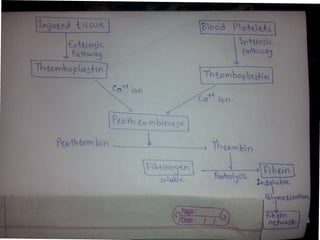 Injured tissue
Blood Platelets
Extrinsic
Pathway
Intrinsic
Pathway
Thromboplastin
Thromboplastin
Ca++ ion
Ca++ ion
Prothrombinase
Prothrombin
Thrombin
Fibrinogen
soluble
Proteolysis
Fibrin
Insoluble
Polymerization
Fibrin
network
Page
Date